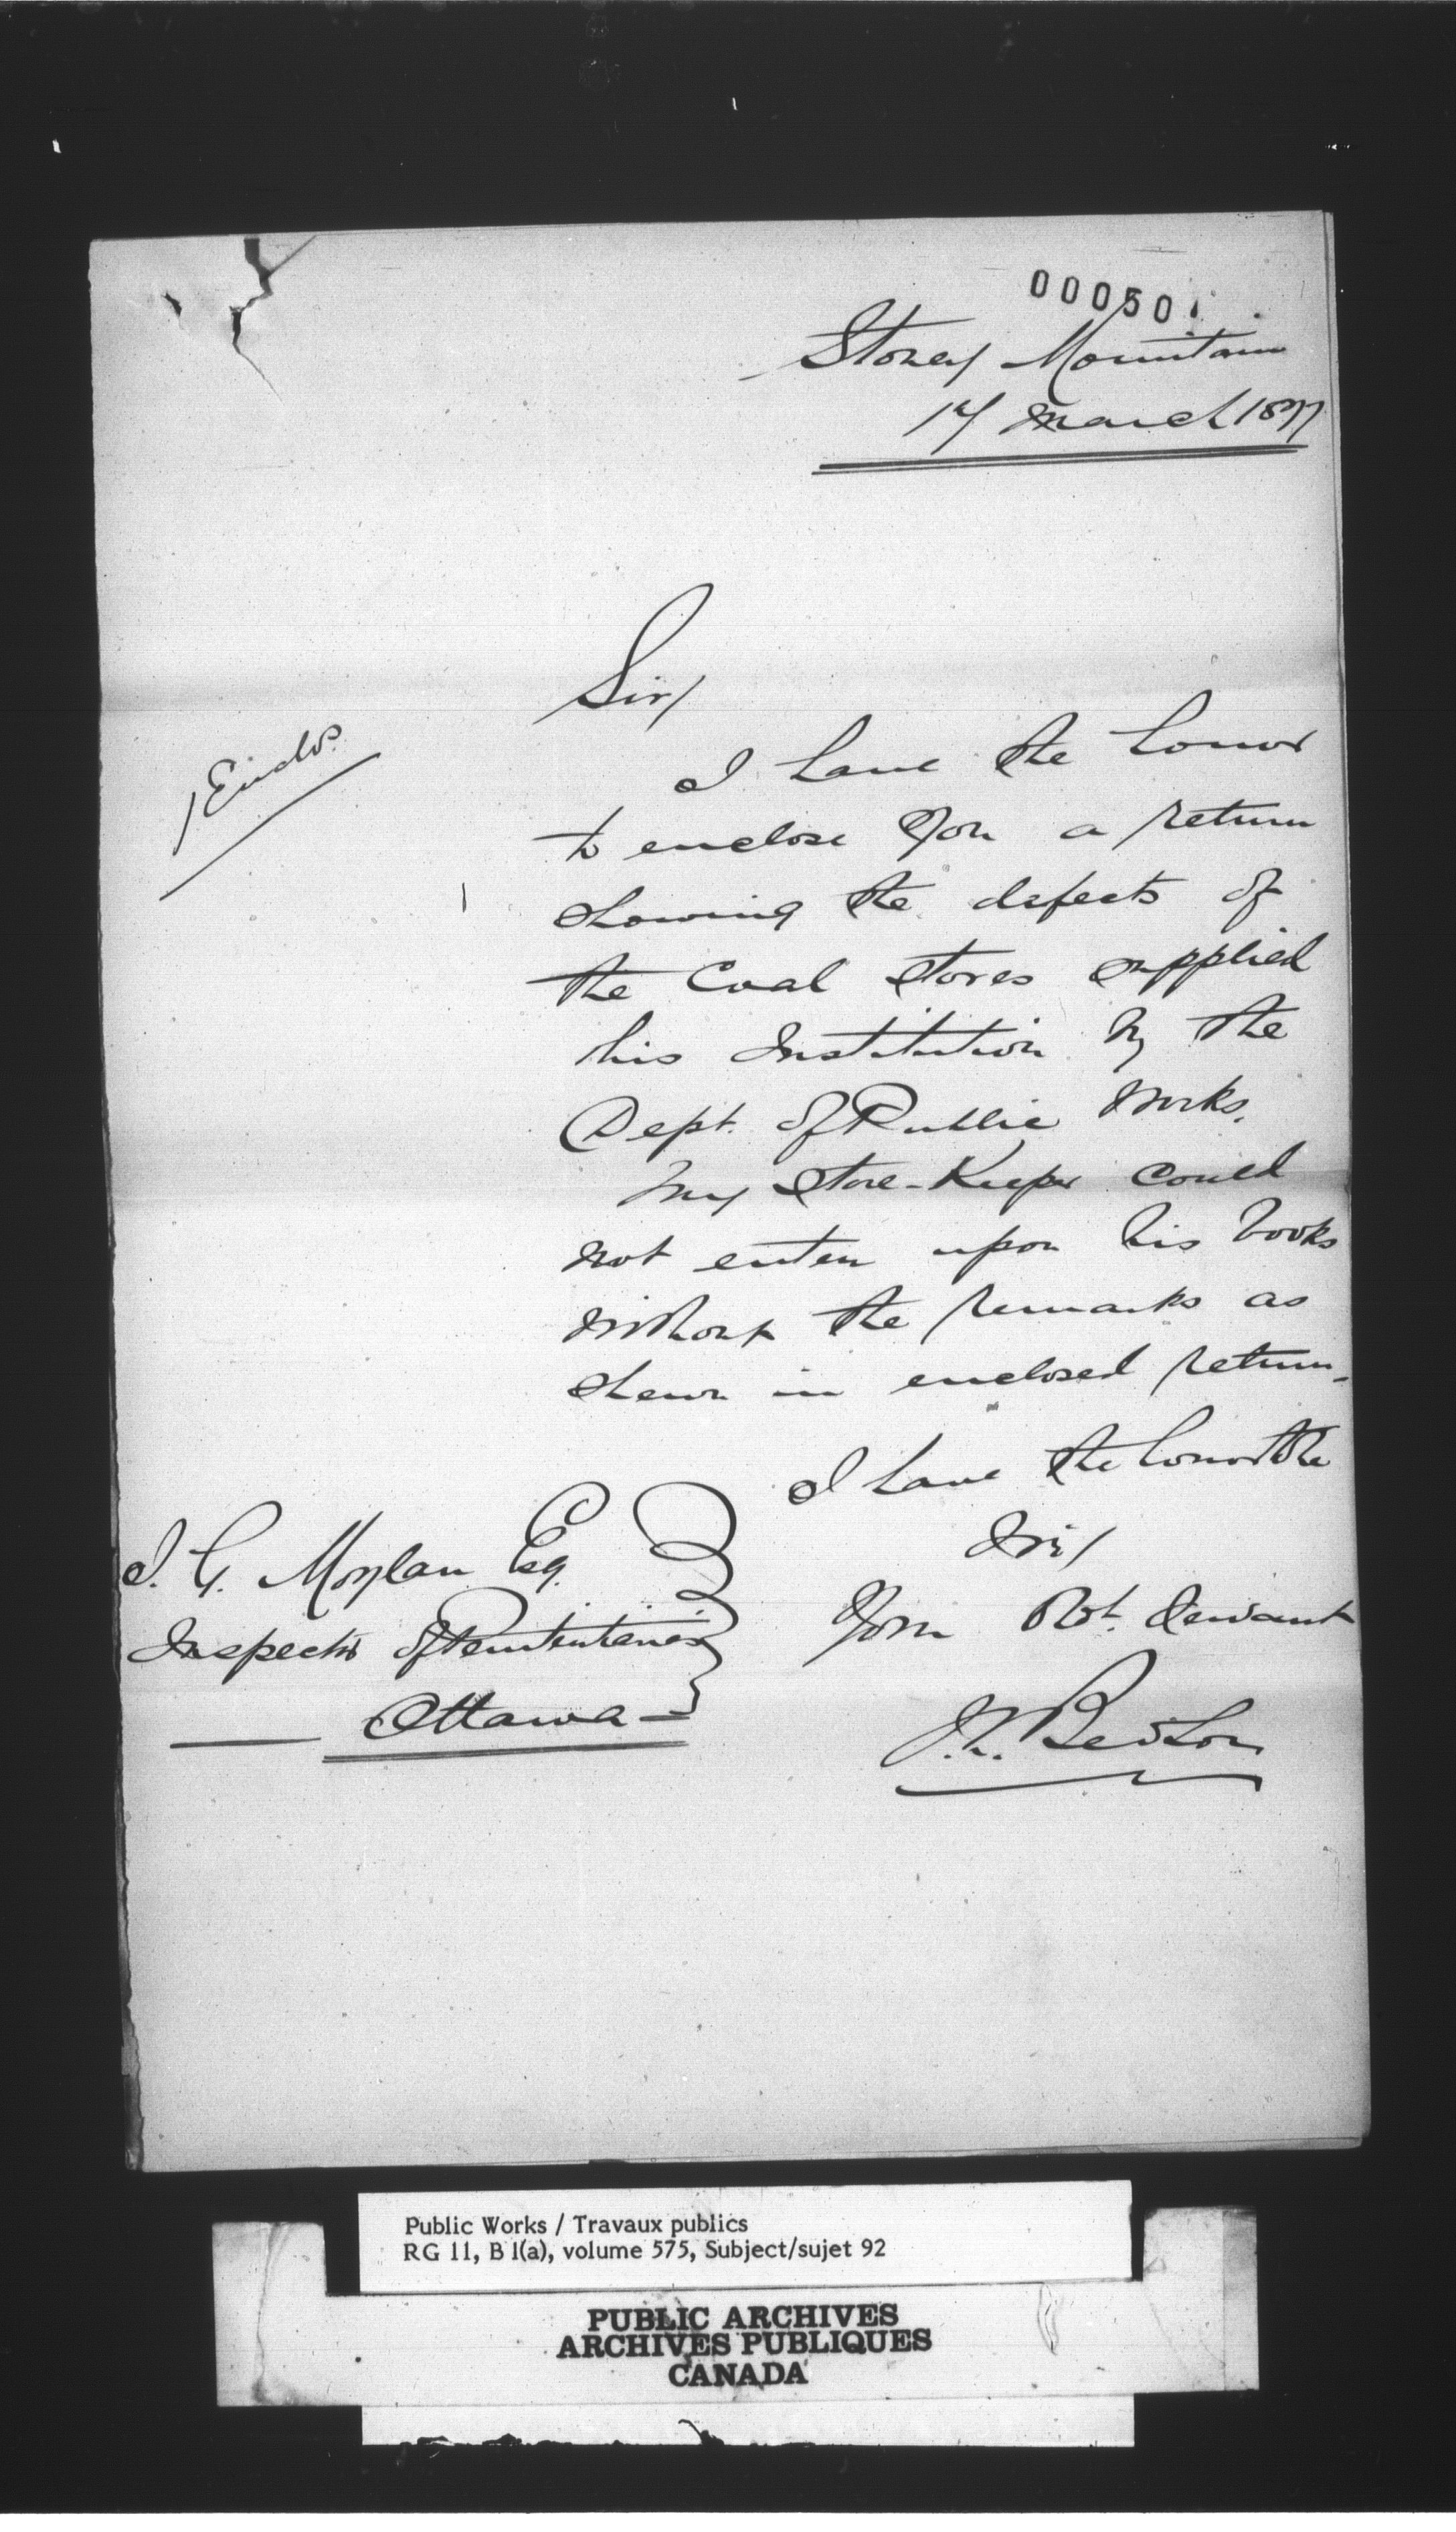 00050
Stoney Mountain
17 March 1877
Sir/
I have the honor
1 Enclos.
to enclose you a return
showing the defects of
the Coal Stoves supplied
this Institution by the
Dept. of Public Works.
My Store-Keeper could
not enter upon his books
without the remarks as
shewn in enclosed return.
I have the honor to be
Sir/
Your Obt. Servant
S.L. Bedson
J. G. Moylan Esq.
Inspector of Penitentiaries
Ottawa
Public Works / Travaux publics
RG 11, B 1(a), volume 575, Subject/sujet 92
PUBLIC ARCHIVES
ARCHIVES PUBLIQUES
CANADA